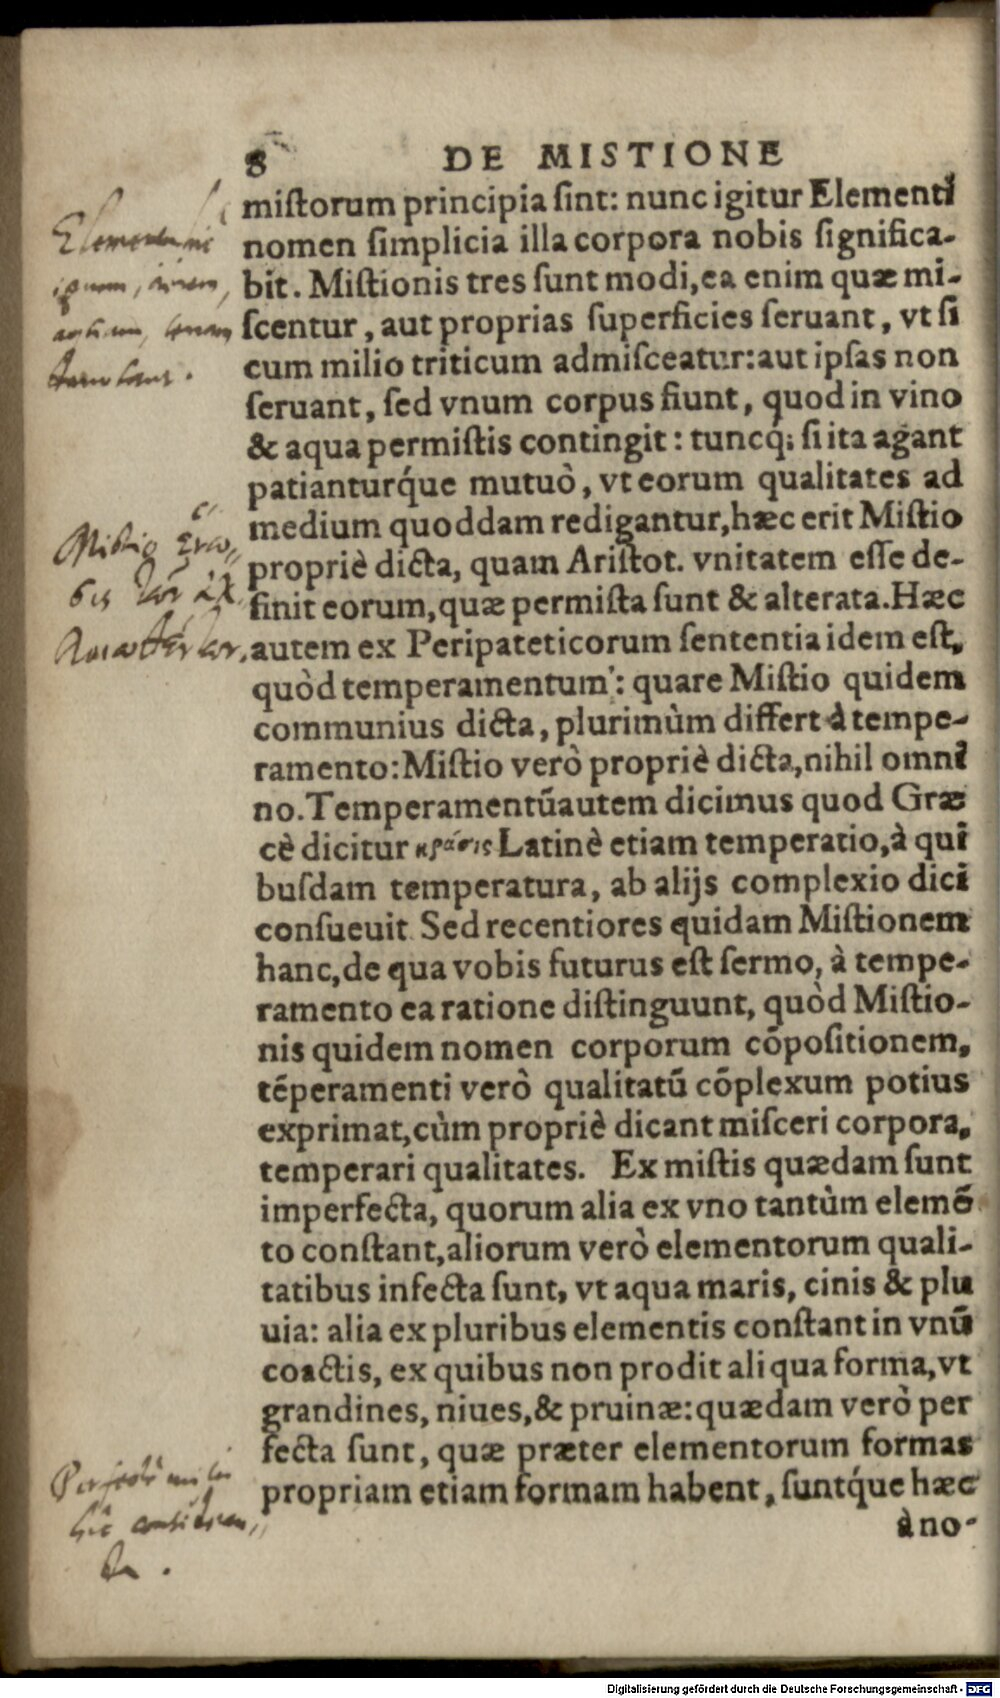 8 DE MISTIONE
miſtorum principia ſint: nunc igitur Elementi
nomen ſimplicia illa corpora nobis ſignifica-
bit. Miſtionis tres ſunt modi, ea enim quæ mi-
ſcentur, aut proprias ſuperficies ſeruant, vt ſi
cum milio triticum admiſceatur: aut ipſas non
ſeruant, ſed vnum corpus fiunt, quod in vino
& aqua permiſtis contingit: tuncq́; ſi ita agant
patianturq́ue mutuò, vt eorum qualitates ad
medium quoddam redigantur, hæc erit Miſtio
propriè dicta, quam Ariſtot. vnitatem eſſe de-
finit eorum, quæ permiſta ſunt & alterata. Hæc
autem ex Peripateticorum ſententia idem eſt,
quòd temperamentum: quare Miſtio quidem
communius dicta, plurimùm differt à tempe-
ramento: Miſtio verò propriè dicta, nihil omni
no. Temperamentũ autem dicimus quod Græ
cè dicitur κρᾶσις Latinè etiam temperatio, à qui
buſdam temperatura, ab alijs complexio dici
conſueuit. Sed recentiores quidam Miſtionem
hanc, de qua vobis futurus eſt ſermo, à tempe-
ramento ea ratione diſtinguunt, quòd Miſtio-
nis quidem nomen corporum cõpoſitionem,
tẽperamenti verò qualitatũ cõplexum potius
exprimat, cùm propriè dicant miſceri corpora,
temperari qualitates. Ex miſtis quædam ſunt
imperfecta, quorum alia ex vno tantùm elemẽ
to conſtant, aliorum verò elementorum quali-
tatibus infecta ſunt, vt aqua maris, cinis & plu
uia: alia ex pluribus elementis conſtant in vnũ
coactis, ex quibus non prodit aliqua forma, vt
grandines, niues, & pruinæ: quædam verò per
fecta ſunt, quæ præter elementorum formas
propriam etiam formam habent, ſuntq́ue hæc
à no-
Miſtio
Digitalisierung gefördert durch die Deutsche Forschungsgemeinschaft - DFG